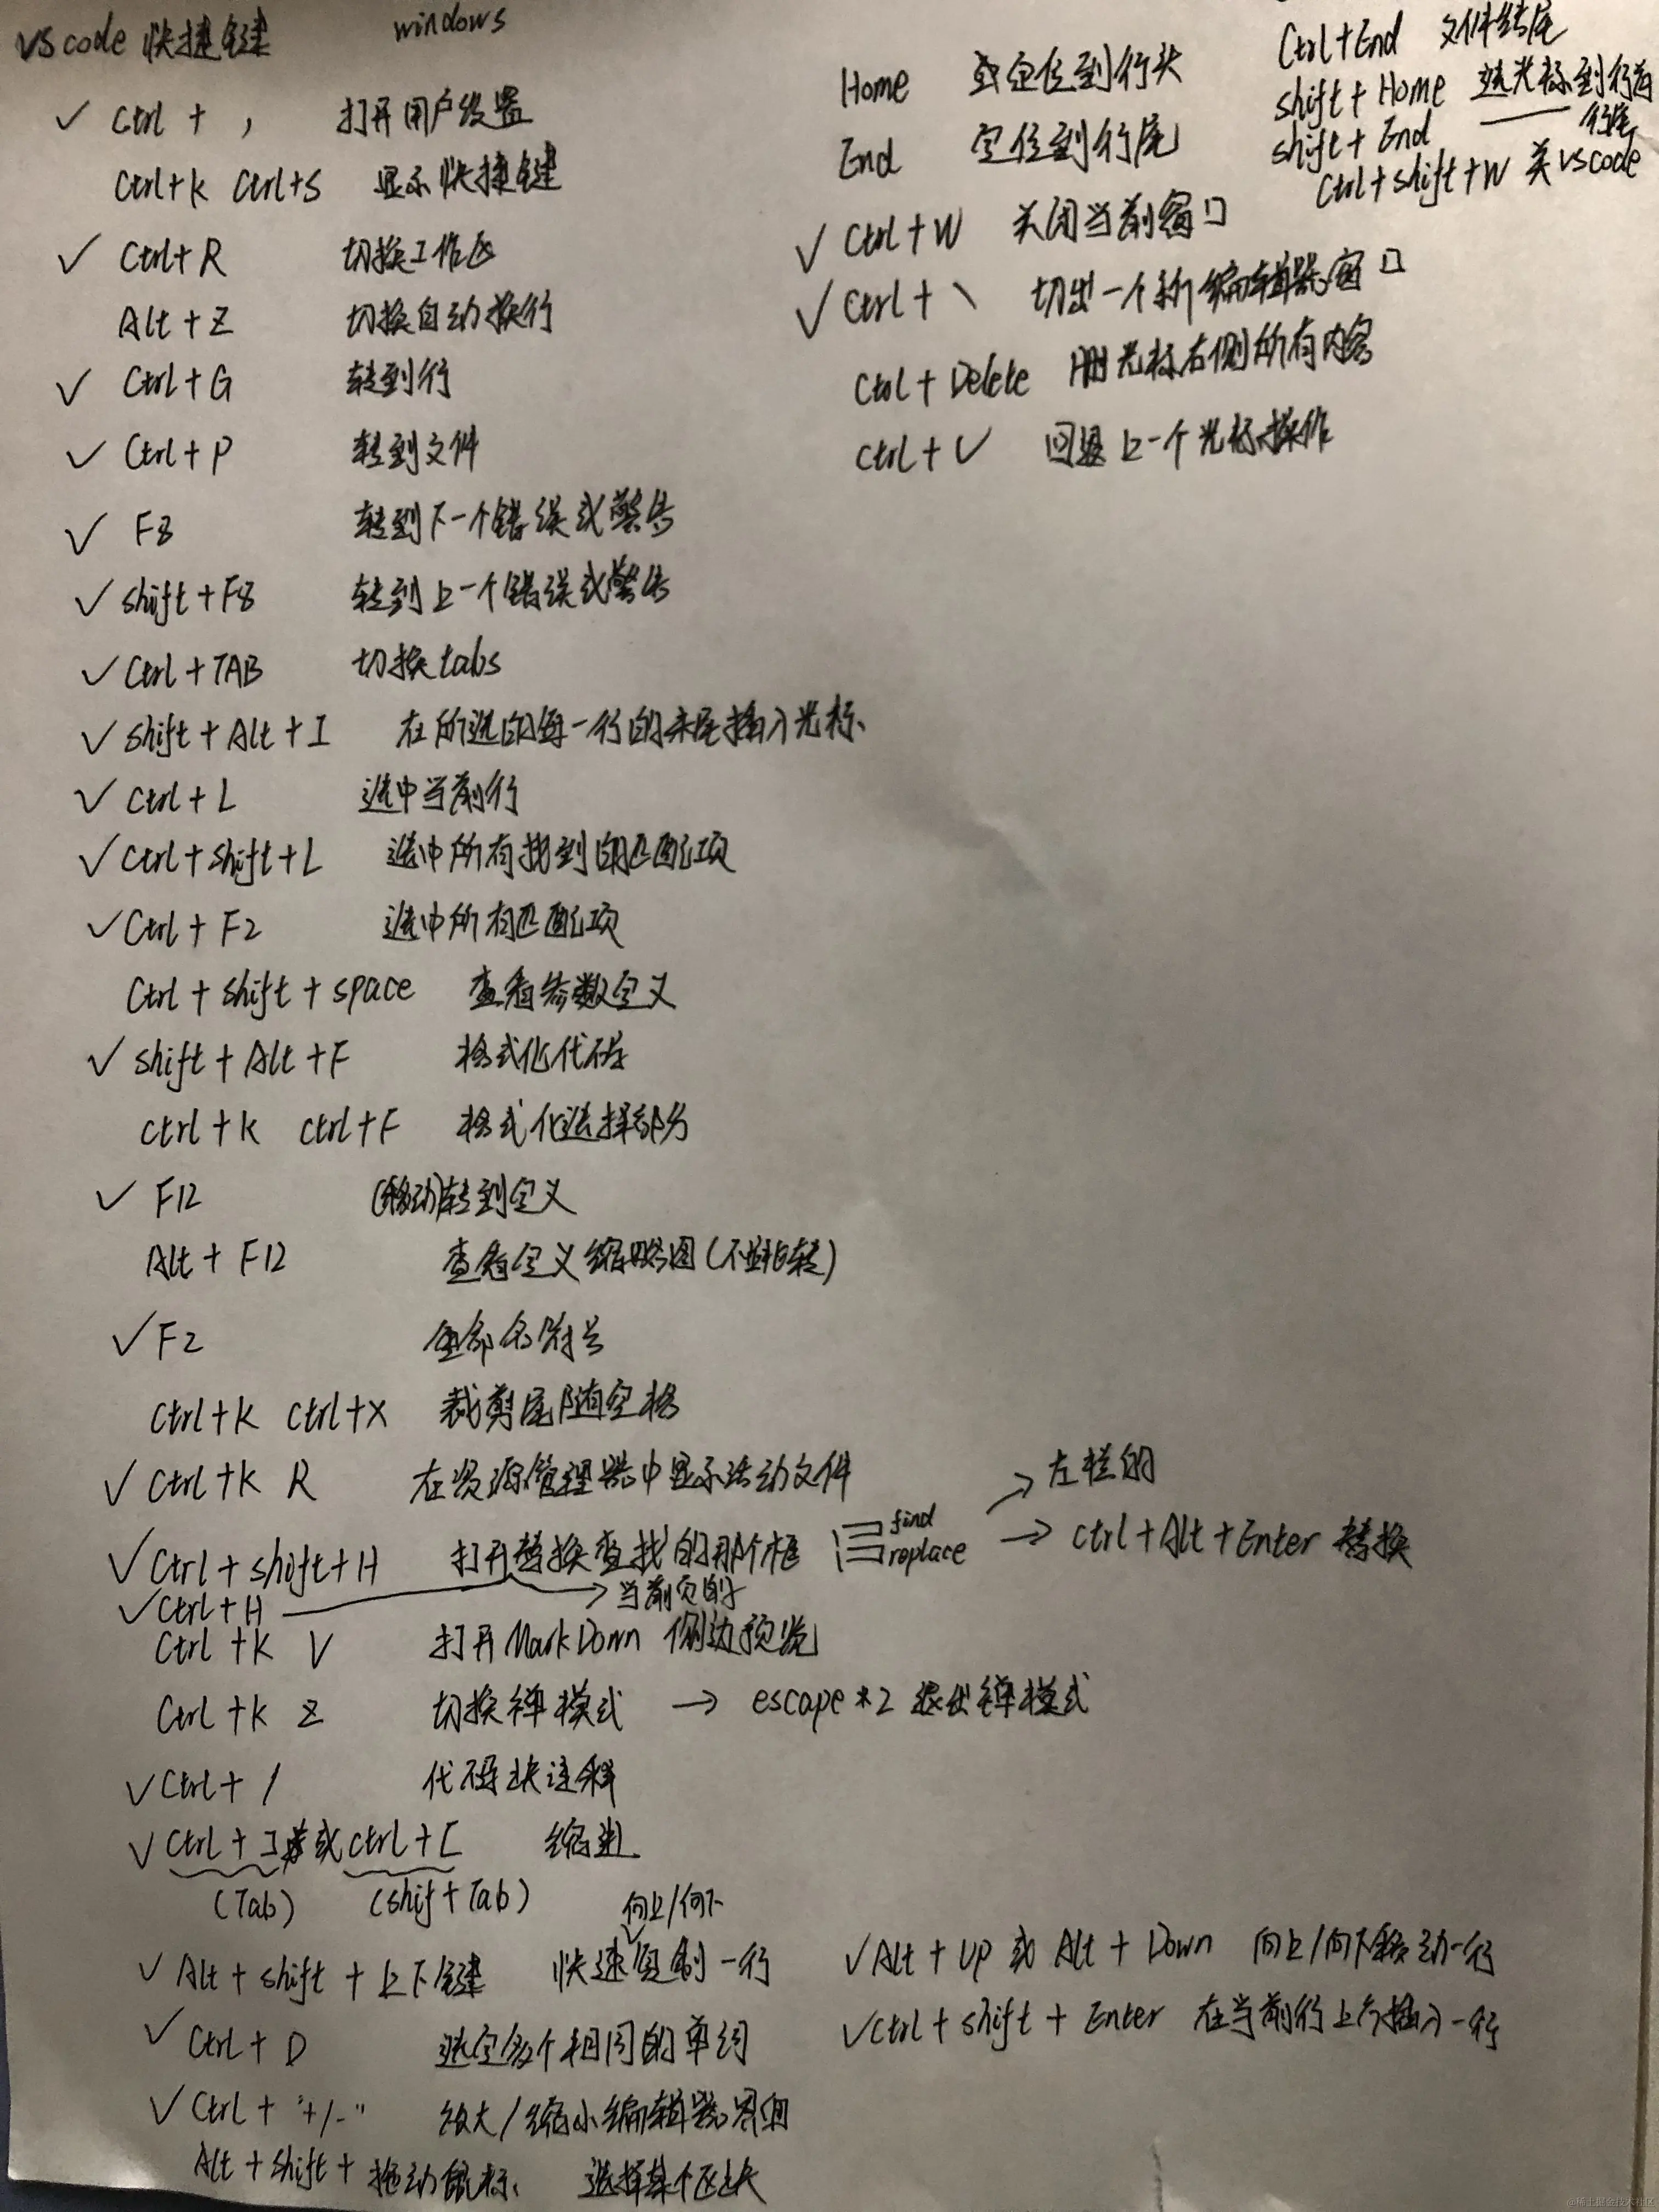 vscode 快捷键 windows
✓ Ctrl + , 打开用户设置
Ctrl+K Ctrl+S 显示快捷键
✓ Ctrl+R 切换工作区
Alt+Z 切换自动换行
✓ Ctrl+G 转到行
✓ Ctrl+P 转到文件
✓ F8 转到下一个错误或警告
✓ shift+F8 转到上一个错误或警告
✓ Ctrl+TAB 切换tabs
✓ shift+Alt+I 在所选的每一行的末尾插入光标
✓ Ctrl+L 选中当前行
✓ Ctrl+shift+L 选中所有找到的匹配项
✓ Ctrl+F2 选中所有匹配项
Ctrl+shift+space 查看参数定义
✓ shift+Alt+F 格式化代码
ctrl+K ctrl+F 格式化选择部分
✓ F12 (移动)转到定义
Alt+F12 查看定义缩略图(不跳转)
✓ F2 重命名符号
Ctrl+K ctrl+X 裁剪尾随空格
✓ Ctrl+K R 在资源管理器中显示活动文件
✓ Ctrl+shift+H 打开替换查找的那个框 find replace → 左栏的
→ ctrl+Alt+Enter 替换
✓ Ctrl+H → 当前页的
Ctrl+K V 打开MarkDown 侧边预览
Ctrl+K Z 切换禅模式 → escape*2 退出禅模式
✓ Ctrl+/ 代码块注释
✓ Ctrl+] 或 ctrl+[ 缩进
(Tab) (shif+Tab) 向上/向下
✓ Alt+shift+上下键 快速复制一行
✓ Ctrl+D 选定多个相同的单词
✓ Ctrl+"+/-" 放大/缩小编辑器界面
Alt+shift+拖动鼠标 选择某个区块
Home 定位到行头
End 定位到行尾
✓ Ctrl+W 关闭当前窗口
✓ Ctrl+\ 切出一个新编辑器窗口
Ctrl+Delete 删光标右侧所有内容
Ctrl+U 回退上一个光标操作
✓ Alt+Up 或 Alt+Down 向上/向下移动一行
✓ Ctrl+shift+Enter 在当前行上方插入一行
Ctrl+End 文件结尾
shift+Home 选光标到行首
shift+End —— 行尾
Ctrl+shift+W 关vscode
@稀土掘金技术社区